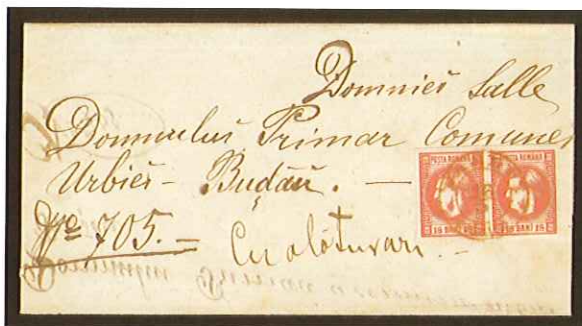 Domniei Salle
Domnului Primar Comunei
Urbiei - Budău. -
No 705. -
Cu alăturari. -
POSTA ROMANA POSTA ROMANA
18 BANI 18 18 BANI 18